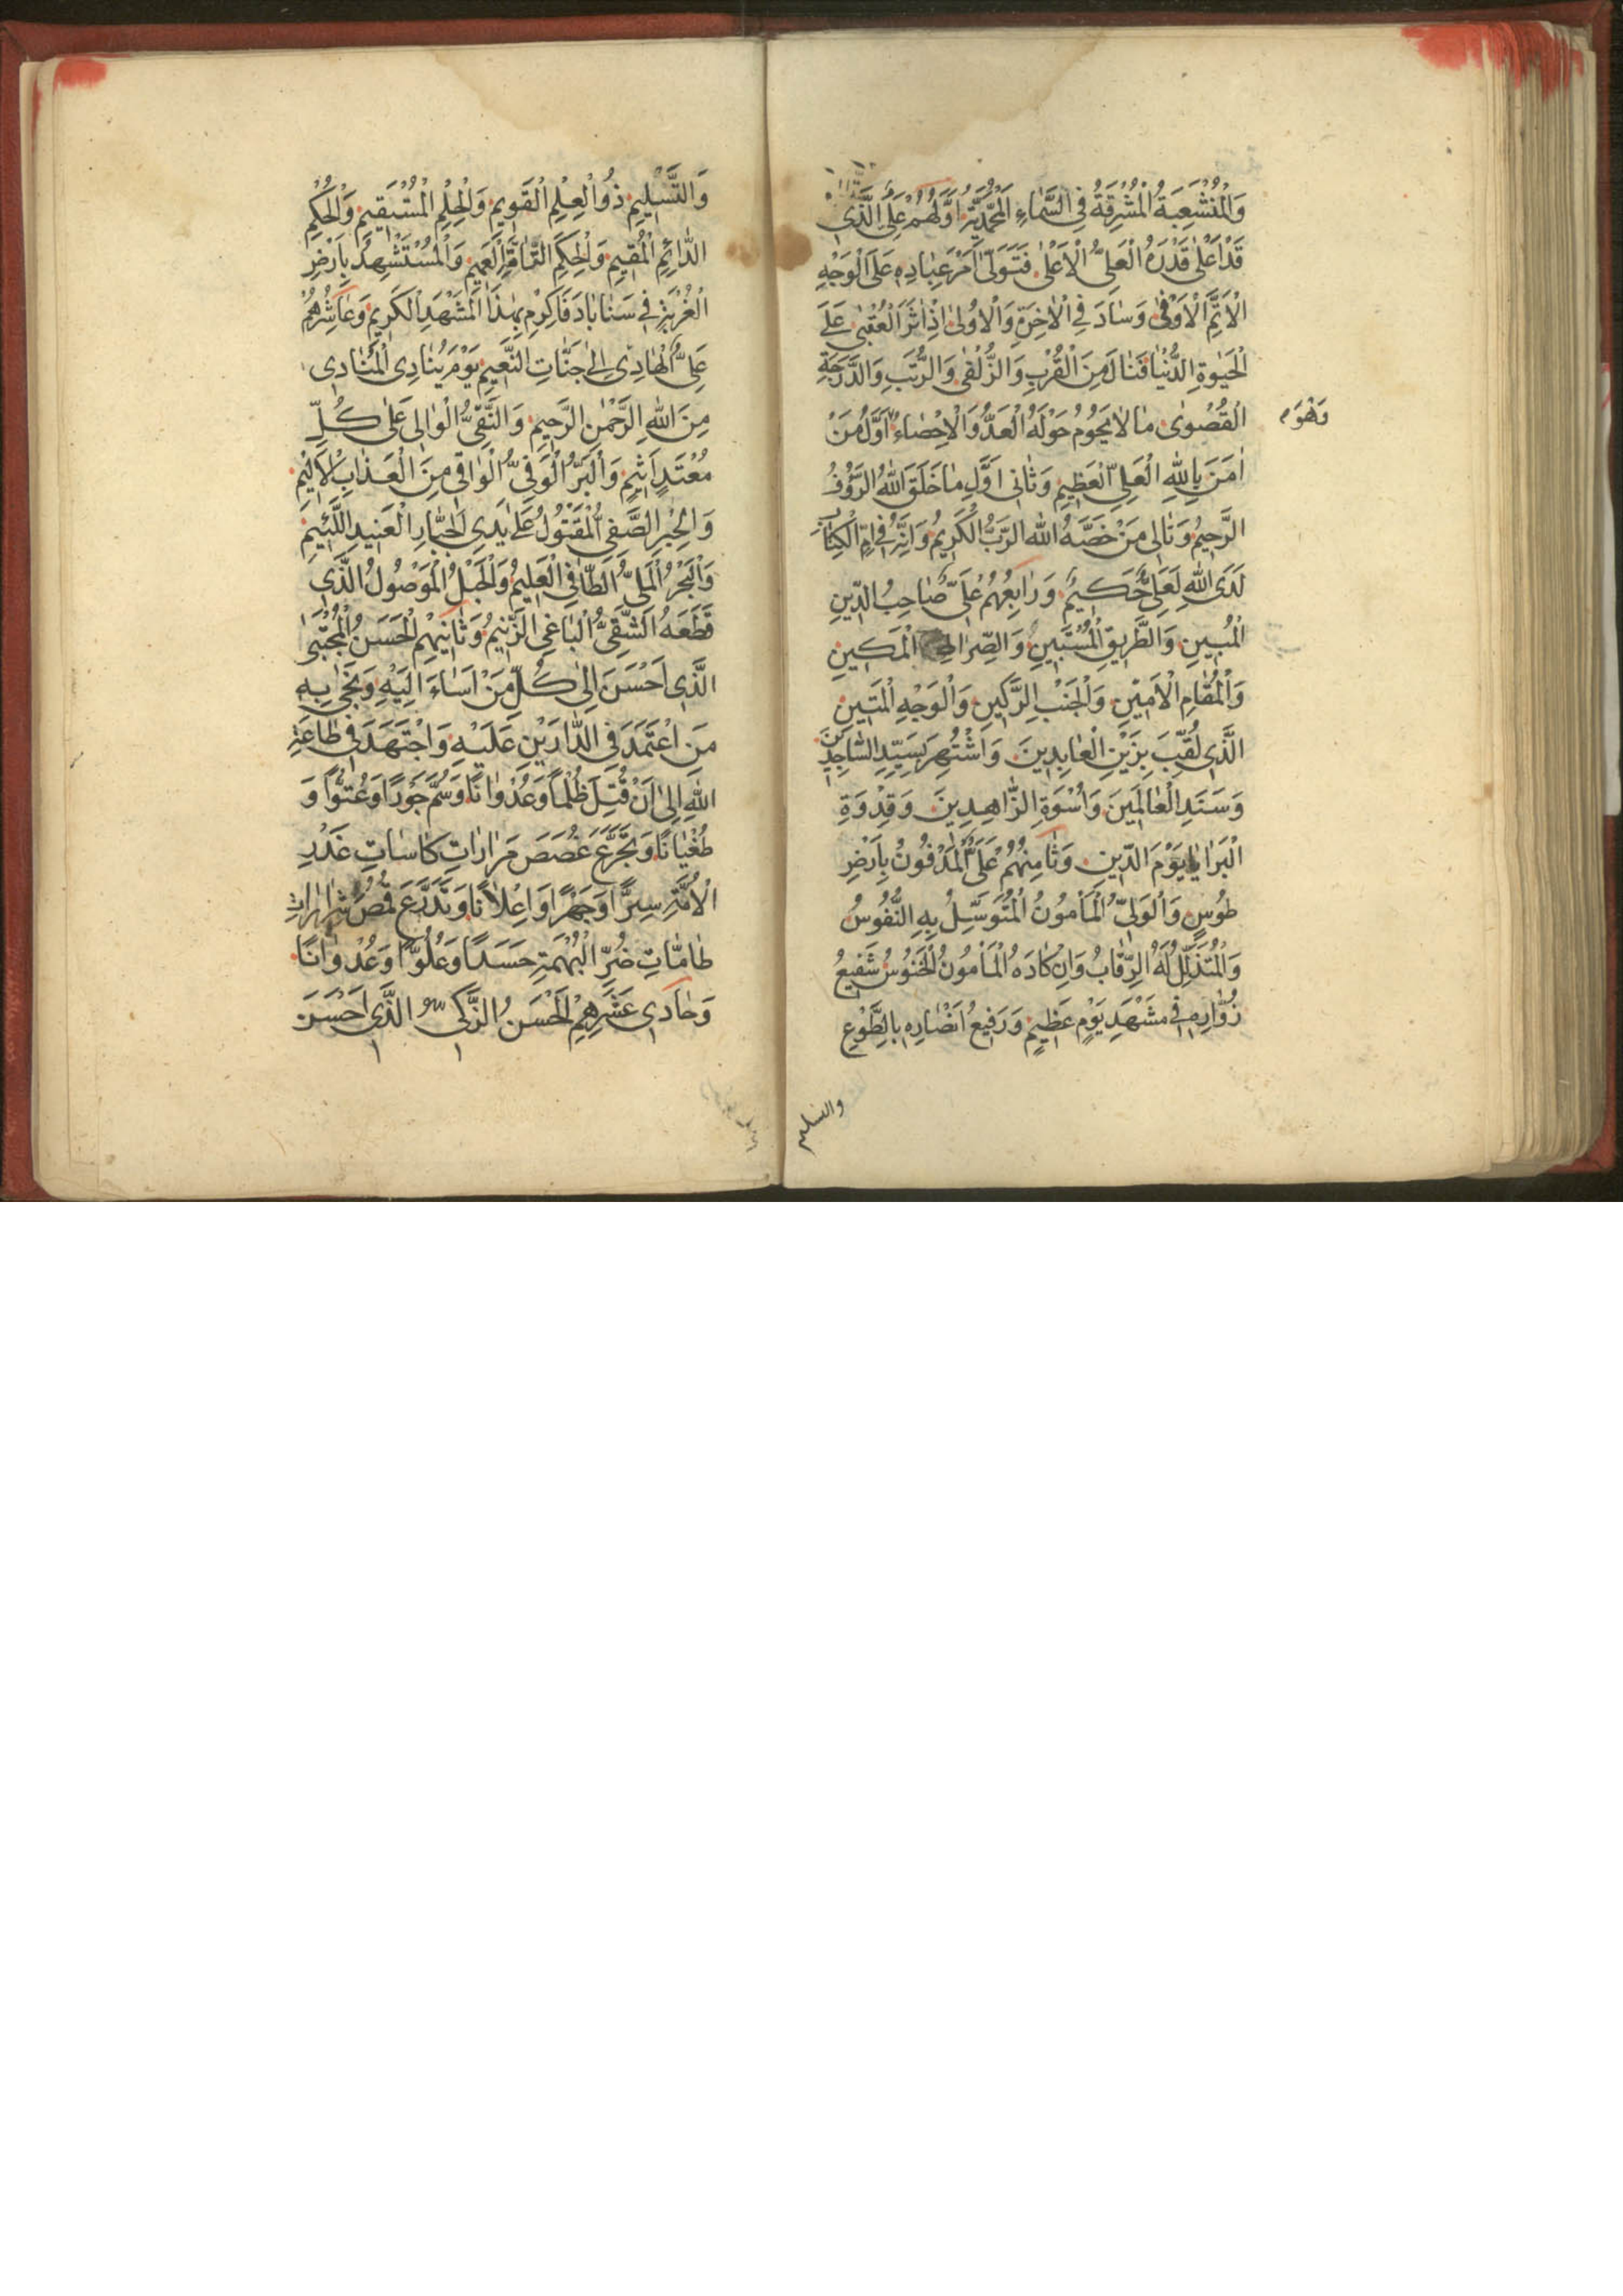 وَالْمُنْشَعِبَةُ الْمُشْرِقَةُ فِي السَّمَاءِ الْمُحَمَّدِيَّةِ اَوَّلُهُمْ عَلِيٌّ الَّذِي
قَدْ اَعْلٰى قَدْرَهُ الْعَلِيُّ الْاَعْلٰى فَتَوَلّٰى اَمْرَ عِبَادِهِ عَلَى الْوَجْهِ
الْاَتَمِّ الْاَوْفٰى وَسَادَ فِي الْاٰخِرَةِ وَالْاُولٰى اِذْ اٰثَرَ الْعُقْبٰى عَلَى
الْحَيٰوةِ الدُّنْيَا فَنَالَ مِنَ الْقُرْبِ وَالزُّلْفٰى وَالرُّتَبِ وَالدَّرَجَةِ
الْقُصْوٰى مَا لَا يَحُومُ حَوْلَهُ الْعَدُّ وَالْاِحْصَاءُ اَوَّلُ مَنْ
وَهُوَ
اٰمَنَ بِاللّٰهِ الْعَلِيِّ الْعَظِيمِ وَثَانِي اَوَّلِ مَا خَلَقَ اللّٰهُ الرَّؤُفُ
الرَّحِيمُ وَتَالِي مَنْ خَصَّهُ اللّٰهُ الرَّبُّ الْكَرِيمُ وَاِنَّهُ فِي اُمِّ الْكِتَابِ
لَدَى اللّٰهِ لَعَلِيٌّ حَكِيمٌ وَرَابِعُهُمْ عَلِيٌّ صَاحِبُ الدِّينِ
الْمُبِينِ وَالطَّرِيقِ الْمُسْتَبِينِ وَالصِّرَاطِ الْمَكِينِ
وَالْمُقَامِ الْاَمِينِ وَالْجَنْبِ الرَّكِينِ وَالْوَجْهِ الْمَتِينِ
الَّذِي لُقِّبَ بِزَيْنِ الْعَابِدِينَ وَاشْتُهِرَ بِسَيِّدِ السَّاجِدِينَ
وَسَنَدِ الْعَالَمِينَ وَاُسْوَةِ الزَّاهِدِينَ وَقِدْوَةِ
الْبَرَايَا يَوْمَ الدِّينِ وَثَامِنُهُمْ عَلِيٌّ الْمَدْفُونُ بِاَرْضِ
طُوسٍ وَالْوَلِيُّ الْمَأْمُونُ الْمُتَوَسِّلُ بِهِ النُّفُوسُ
وَالْمُتَذَلِّلُ لَهُ الرِّقَابُ وَاِنْ كَادَهُ الْمَأْمُونُ الْخَنُوسُ شَفِيعُ
زُوَّارِهِ فِي مَشْهَدِ يَوْمٍ عَظِيمٍ وَرَفِيعُ اَنْصَارِهِ بِالطَّوْعِ
والتسليم
وَالتَّسْلِيمِ ذُو الْعِلْمِ الْقَوِيمِ وَالْحِلْمِ الْمُسْتَقِيمِ وَالْحُكْمِ
الدَّائِمِ الْمُقِيمِ وَالْحِكَمِ التَّامَّةِ الْعَمِيمِ وَالْمُسْتَشْهِدُ بِاَرْضِ
الْغُرْبَةِ فِي سَنَابَادَ فَاَكْرِمْ بِهٰذَا الْمَشْهَدِ الْكَرِيمِ وَعَاشِرُهُمْ
عَلِيٌّ الْهَادِي اِلٰى جَنَّاتِ النَّعِيمِ يَوْمَ يُنَادِي الْمُنَادِي
مِنَ اللّٰهِ الرَّحْمٰنِ الرَّحِيمِ وَالنَّقِيُّ الْوَالِي عَلٰى كُلِّ
مُعْتَدٍ اَثِيمٍ وَالْبَرُّ الْوَفِيُّ الْوَاقِي مِنَ الْعَذَابِ الْاَلِيمِ
وَالْحِبْرِ الصَّفِي الْمَقْتُولُ عَلٰى يَدِي الْجَبَّارِ الْعَنِيدِ اللَّئِيمِ
وَالْبَحْرُ الْمَلِيُّ الطَّافِي الْعَلِيمُ وَالْحَبْلُ الْمَوْصُولُ الَّذِي
قَطَعَهُ الشَّقِيُّ الْبَاغِي الزَّنِيمُ وَثَانِيهِمْ الْحَسَنُ الْمُجْتَبٰى
الَّذِي اَحْسَنَ اِلٰى كُلِّ مَنْ اَسَاءَ اِلَيْهِ وَنَجٰى بِهِ
مَنِ اعْتَمَدَ فِي الدَّارَيْنِ عَلَيْهِ وَاجْتَهَدَ فِي طَاعَةِ
اللّٰهِ اِلٰى اَنْ قُتِلَ ظُلْمًا وَعُدْوَانًا وَسُمَّ جَوْرًا وَعُتُوًّا وَ
طُغْيَانًا وَتَجَرَّعَ غُصَصَ مَرَارَاتِ كَاسَاتِ غَدْرِ
الْاُمَّةِ سِرًّا وَجَهْرًا وَاِعْلَانًا وَتَدَرَّعَ قُمُصَ شَرَارَاتِ
طَامَّاتِ ضُرِّ الْبُهْمَةِ حَسَدًا وَعُلُوًّا وَعُدْوَانًا
وَحَادِي عَشَرِهِمْ الْحَسَنُ الزَّكِيُّ الَّذِي اَحْسَنَ